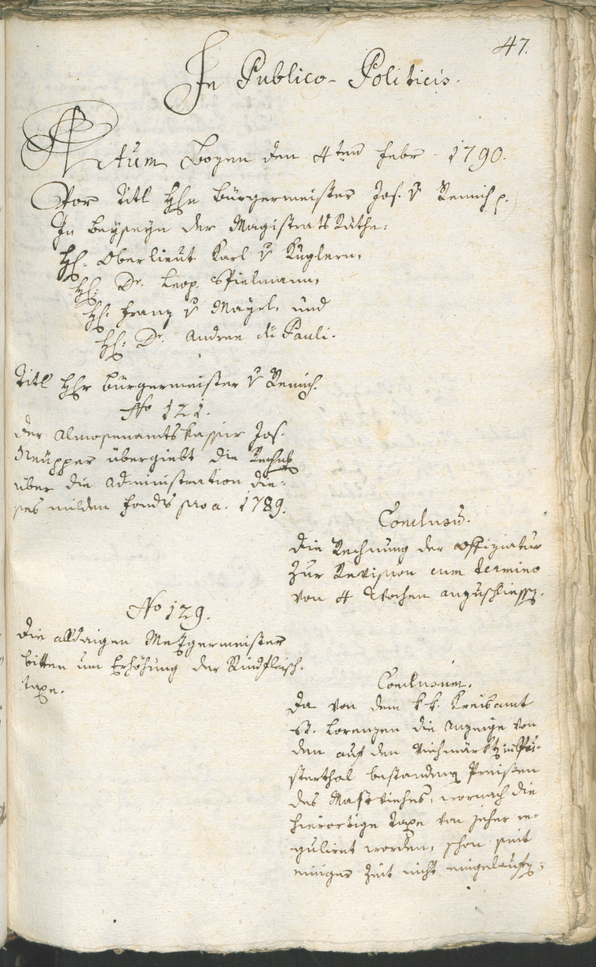 47.
In Publico-Politicis.
Actum Bozen den 4ten Febr. 1790.
Vor Titl Hℓn Bürgermeister Jos. v Remich p.
In Beyseyn der Magistrats Räthe:
Hℓ. Oberlieut Karl v Kuglern,
Hℓ. Dr. Leop. Spielmann,
Hℓ. Franz v Mayrl, und
Hℓ. Dr. Andree di Pauli.
Titl Hℓr Bürgermeister v Remich.
No 121.
Der Almosenamtskassier Jos.
übergiebt die Rechnung
über die Administration die-
ses milden Fonds pro a. 1789.
Conclusum.
Die Rechnung der Offiziatur
zur Revision cum termino
von 4 Wochen anzuschliessen.
No 129.
Die alldaigen Metzgermeister
bitten um Erhöhung der Rindfleisch-
taxe.
Conclusum.
Da von dem k. k. Kreisamt
St. Lorenzen die Anzeige von
den auf den Viehmärkten im Pu-
sterthal bestandenen Preisen
des Mastviehes, wornach die
hierortige Taxe von jeher re-
gulirt worden, schon seit
einiger Zeit nicht eingeloffen;